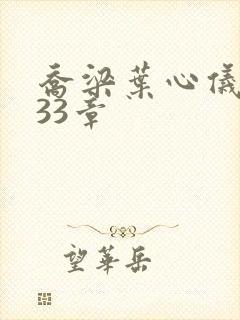 乔梁葉心儀
33章
望華岳